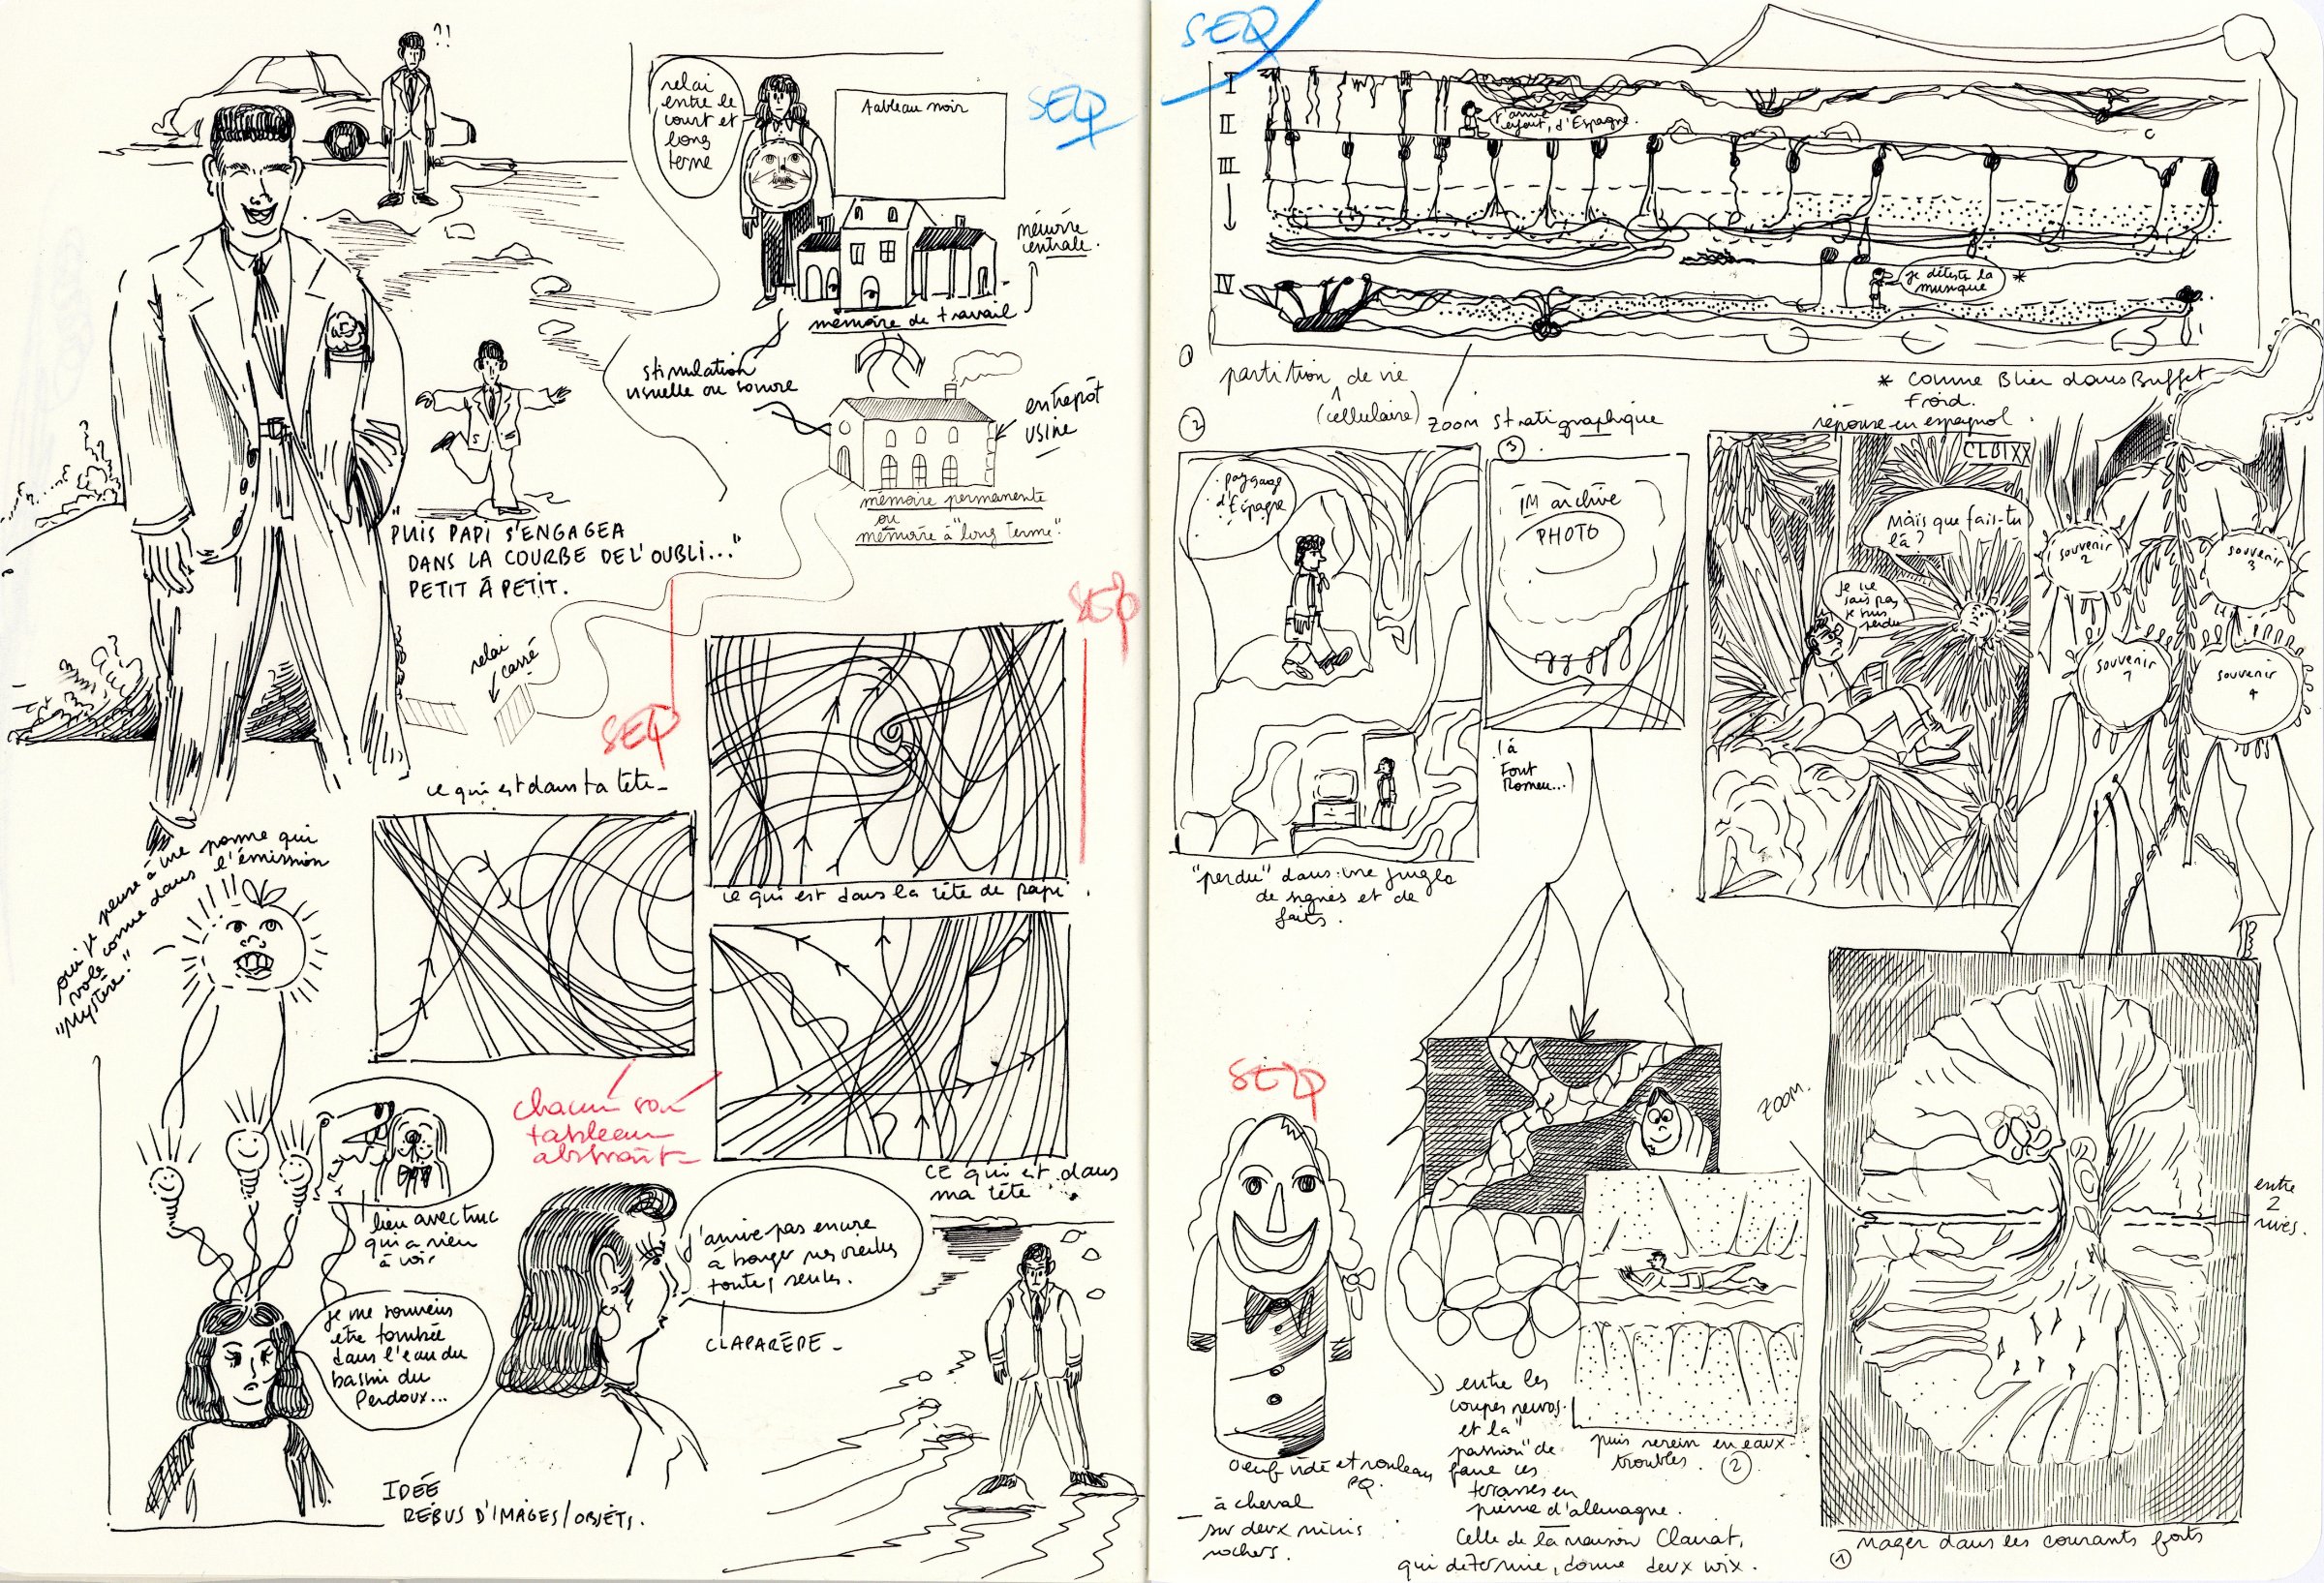 ?!
SEQ
relai
entre le
court et
long
terme
tableau noir
mémoire
centrale.
mémoire de travail
stimulation
visuelle ou sonore
entrepôt
usine
mémoire permanente
ou
mémoire à "long terme".
"PUIS PAPI S'ENGAGEA
DANS LA COURBE DE L'OUBLI..."
PETIT À PETIT.
relai
cassé
SEQ
SEQ
ce qui est dans ta tête
ce qui est dans la tête de papi
CE qui est dans
ma tête
chacun son
tableau
abstrait
oui je pense à une pomme qui
vole comme dans l'émission
"Mystère."
lien avec truc
qui a rien
à voir
je me souviens
être tombée
dans l'eau du
bassin du
Perdoux...
j'arrive pas encore
à bouger mes oreilles
toutes seules.
CLAPARÈDE
IDÉE
RÉBUS D'IMAGES/OBJETS.
SEQ
I
II
III
IV
enfant, d'Espagne.
je déteste la
musique
*
1
partition de vie
(cellulaire)
zoom stratigraphique
* comme Blier dans Buffet
Froid.
réponse en espagnol.
2
paysage
d'Espagne
3
IM archive
PHOTO
(à
Font
Romeu...)
"perdu" dans une jungle
de signes et de
faits.
Mais que fais-tu
là?
je ne
sais pas
je suis
perdu
souvenir
2
souvenir
3
souvenir
1
souvenir
4
SEQ
oeuf vide et rouleau
PQ.
à cheval
sur deux minis
rochers.
entre les
coupes
et la
"passion" de
faire ces
terrasses en
pierre d'allemagne.
Celle de la maison
qui détermine, donne deux
puis serein en eaux
troubles. 2
ZOOM.
entre
2
rives.
1 nager dans les courants forts